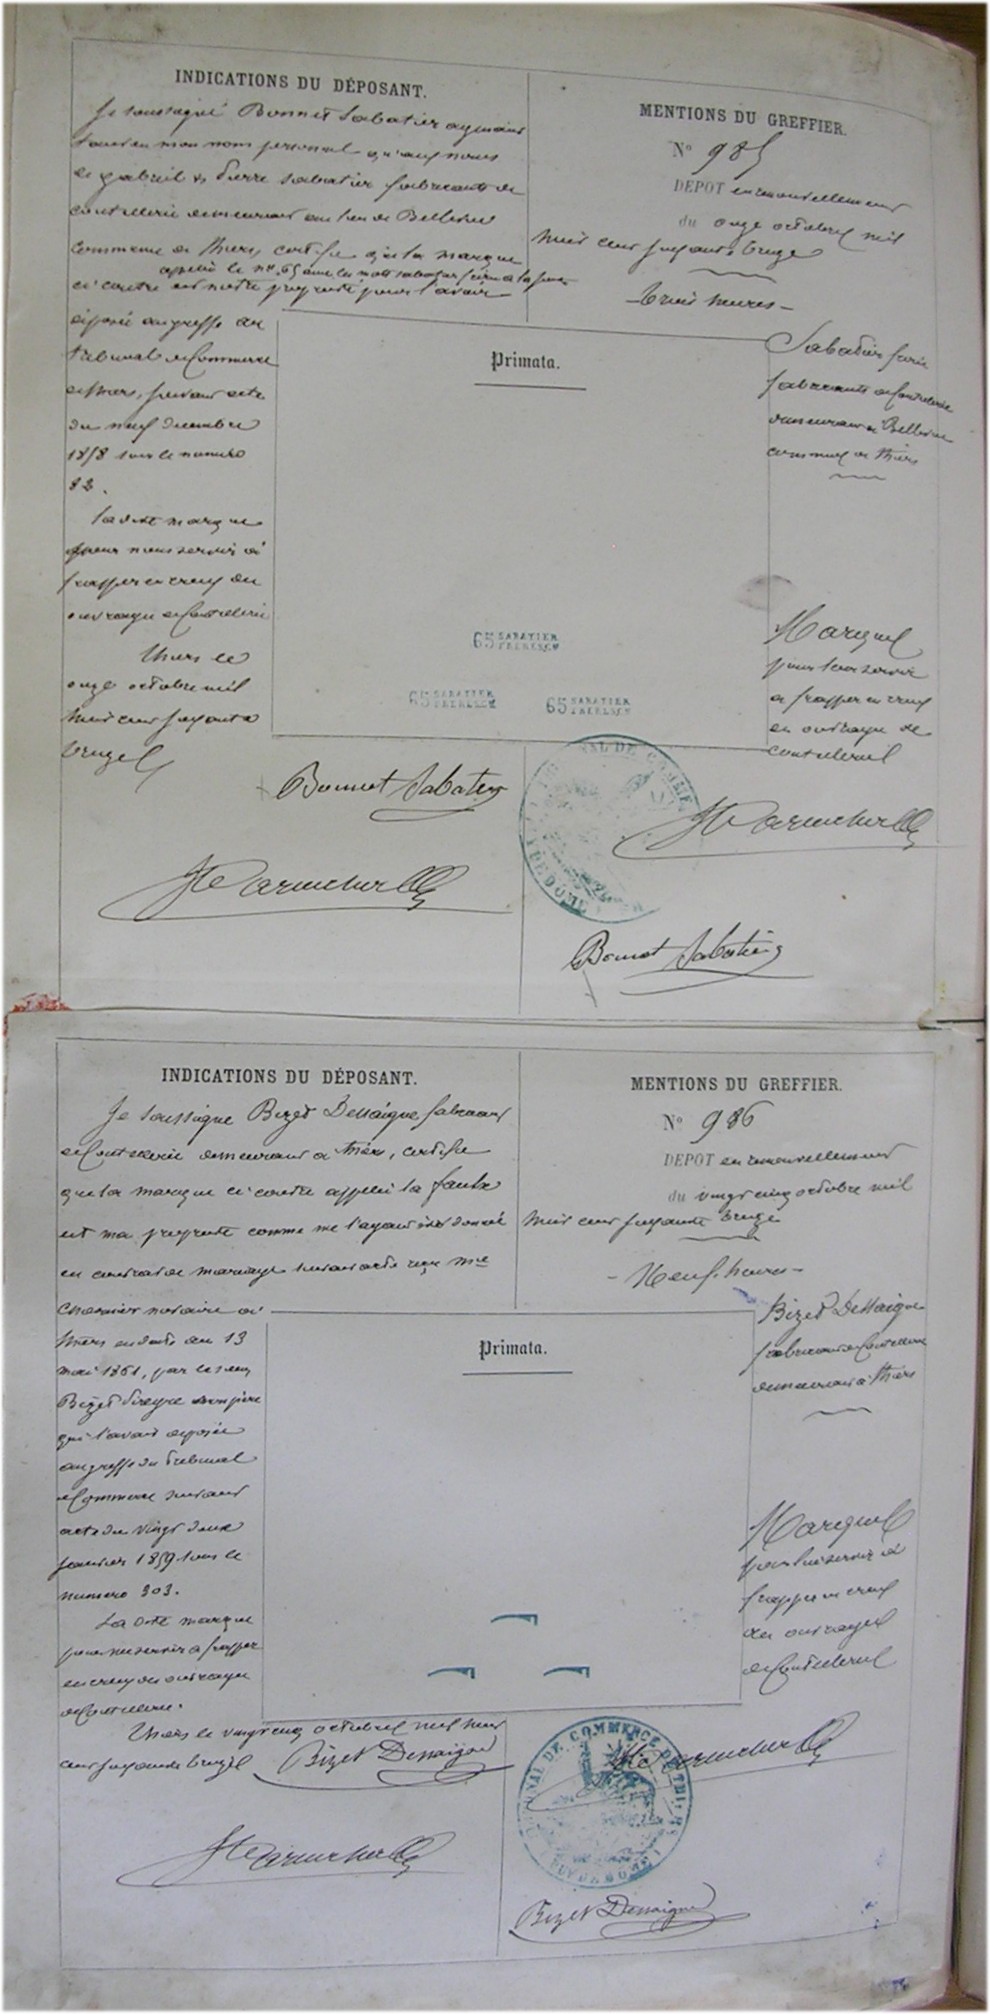 INDICATIONS DU DÉPOSANT.
Je soussigné Bonnet Sabatier agissant
tant en mon nom personnel qu'aux noms
de gabriel & Pierre Sabatier fabricants de
coutellerie demeurant au lieu de Bellevue
commune de thiers, certifie que la marque
appelée le no. 65 avec les mots sabatier frères
ci contre est notre propriété pour l'avoir
déposée au greffe du
tribunal de Commerce
de thiers, suivant acte
du neuf decembre
1858 sous le numéro
82.
Ladite marque
pour nous servir à
frapper en creux des
ouvrages de Coutellerie
thiers le
onze octobre mil
huit cent soixante
treize
Bonnet Sabatier
MENTIONS DU GREFFIER.
No 985
DEPOT en renouvellement
du onze octobre mil
huit cent soixante treize
trois heures
Primata.
Sabatier frères
fabricants de Coutellerie
demeurant à Bellevue
commune de thiers
65 SABATIER
FRERES
65 SABATIER
FRERES
65 SABATIER
FRERES
Marque
pour leur servir
à frapper en creux
en ouvrages de
coutellerie
Bonnet Sabatier
INDICATIONS DU DÉPOSANT.
Je soussigné Bizet Dessaigne fabricant
de Coutellerie demeurant à thiers, certifie
que la marque ci contre appelée la faulx
est ma propriété comme me l'ayant été donné
en contrat de mariage suivant acte reçu me
notaire à
thiers en date du 13
mai 1861, par le sieur
Bizet mon père
qui l'avait déposée
au greffe du tribunal
de Commerce suivant
acte du vingt deux
janvier 1859 sous le
numéro 303.
La dite marque
pour me servir à frapper
en creux des ouvrages
de Coutellerie.
Thiers le vingt cinq octobre mil huit
cent soixante treize
Bizet Dessaigne
MENTIONS DU GREFFIER.
No 986
DEPOT en renouvellement
du vingt cinq octobre mil
huit cent soixante treize
Neuf heures
Primata.
Bizet Dessaigne
fabricant de Coutellerie
demeurant à thiers
Marque
pour lui servir à
frapper en creux
des ouvrages
de Coutellerie
TRIBUNAL DE COMMERCE DE THIERS
PUY DE DOME
Bizet Dessaigne